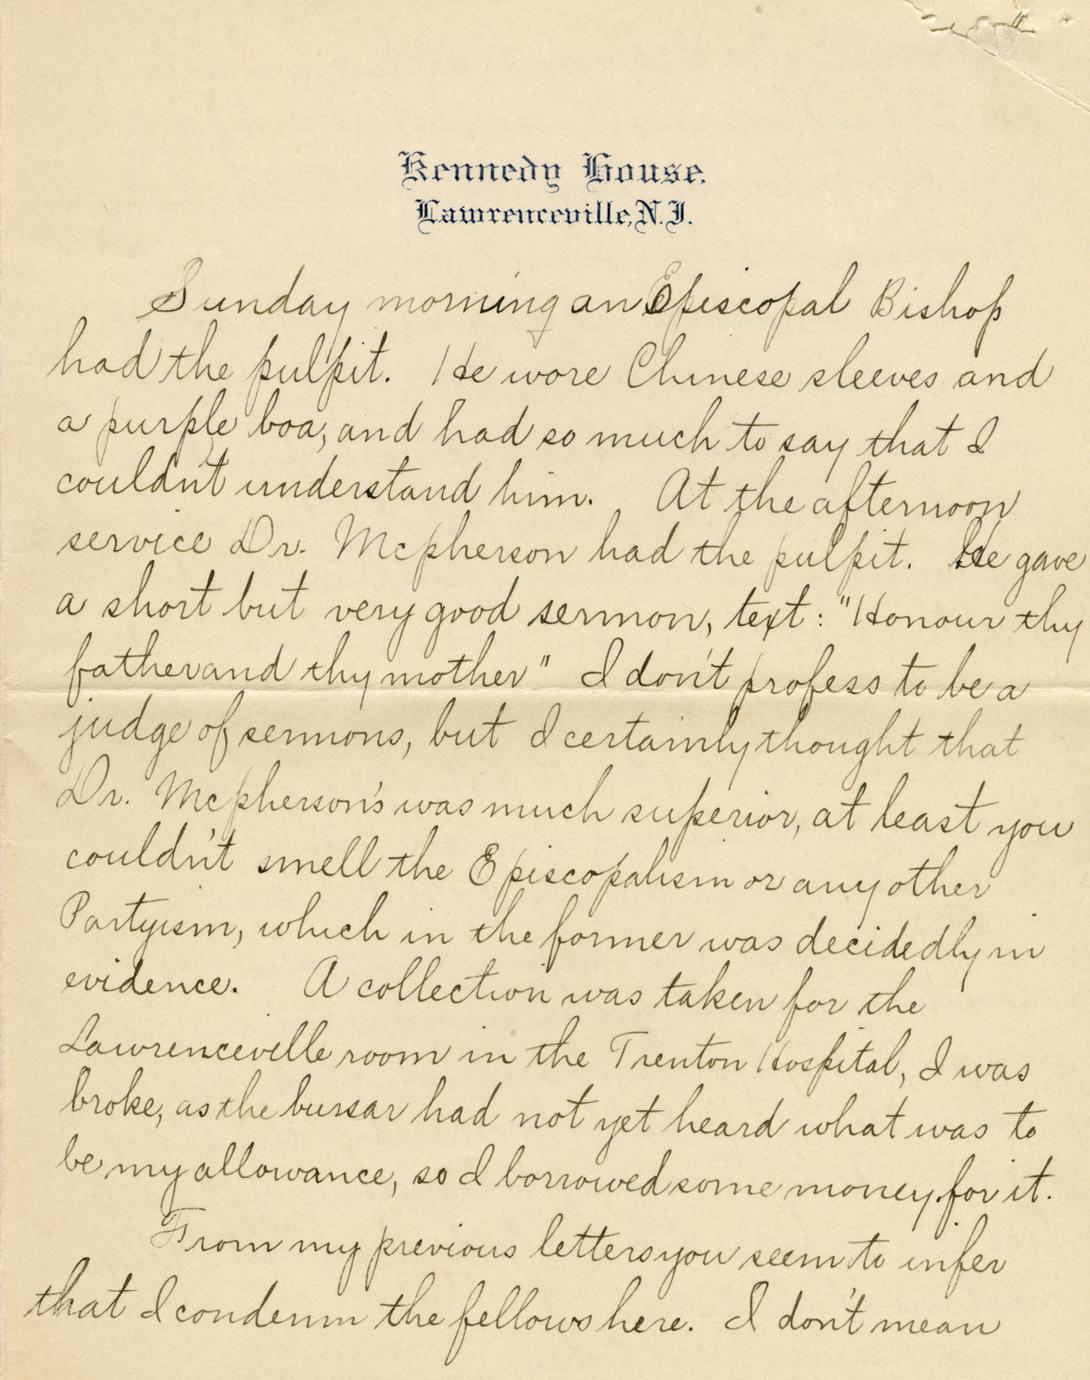 Kennedy House,
Lawrenceville, N.J.
Sunday morning an Episcopal Bishop
had the pulpit. He wore Chinese sleeves and
a purple boa, and had so much to say that I
couldn't understand him. At the afternoon
service Dr. Mcpherson had the pulpit. He gave
a short but very good sermon, text: "Honour thy
father and thy mother" I don't profess to be a
judge of sermons, but I certainly thought that
Dr. Mcpherson's was much superior, at least you
couldn't smell the Episcopalism or any other
Partyism, which in the former was decidedly in
evidence. A collection was taken for the
Lawrenceville room in the Trenton Hospital, I was
broke, as the bursar had not yet heard what was to
be my allowance, so I borrowed some money for it.
From my previous letters you seem to infer
that I condemn the fellows here. I don't mean